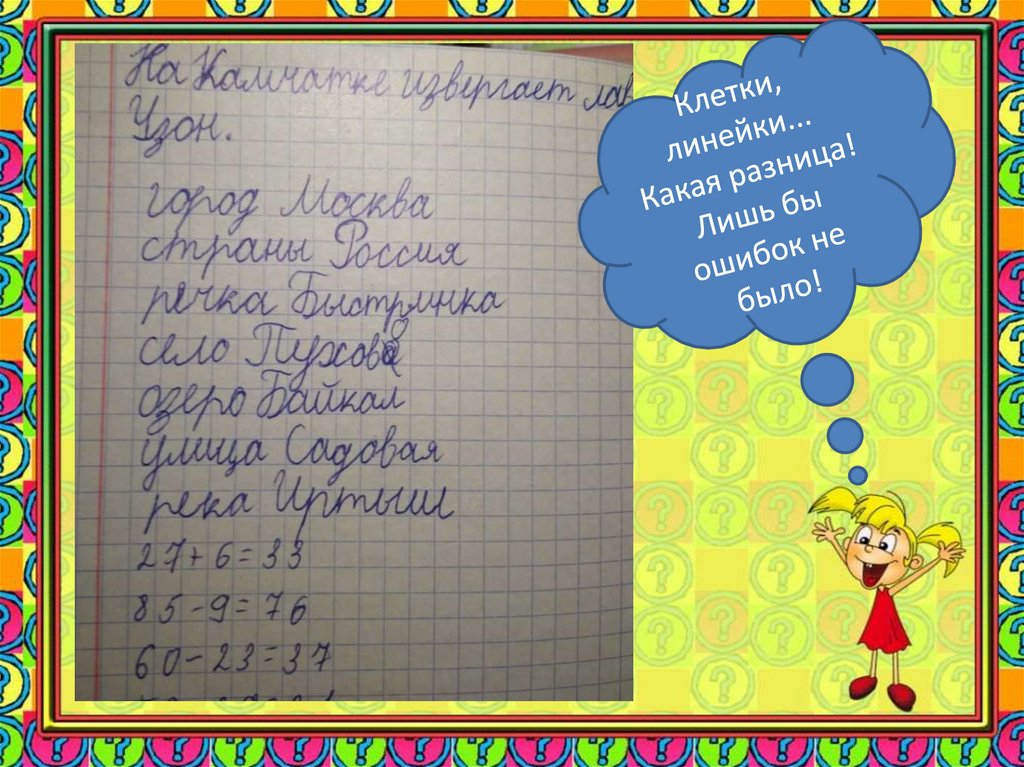 На Камчатке извергает лав
Узон.
город Москва
страны Россия
речка Быстринка
село Пухово
озеро Байкал
улица Садовая
река Иртыш
27+6=33
85-9=76
60-23=37
Клетки,
линейки...
Какая разница!
Лишь бы
ошибок не
было!